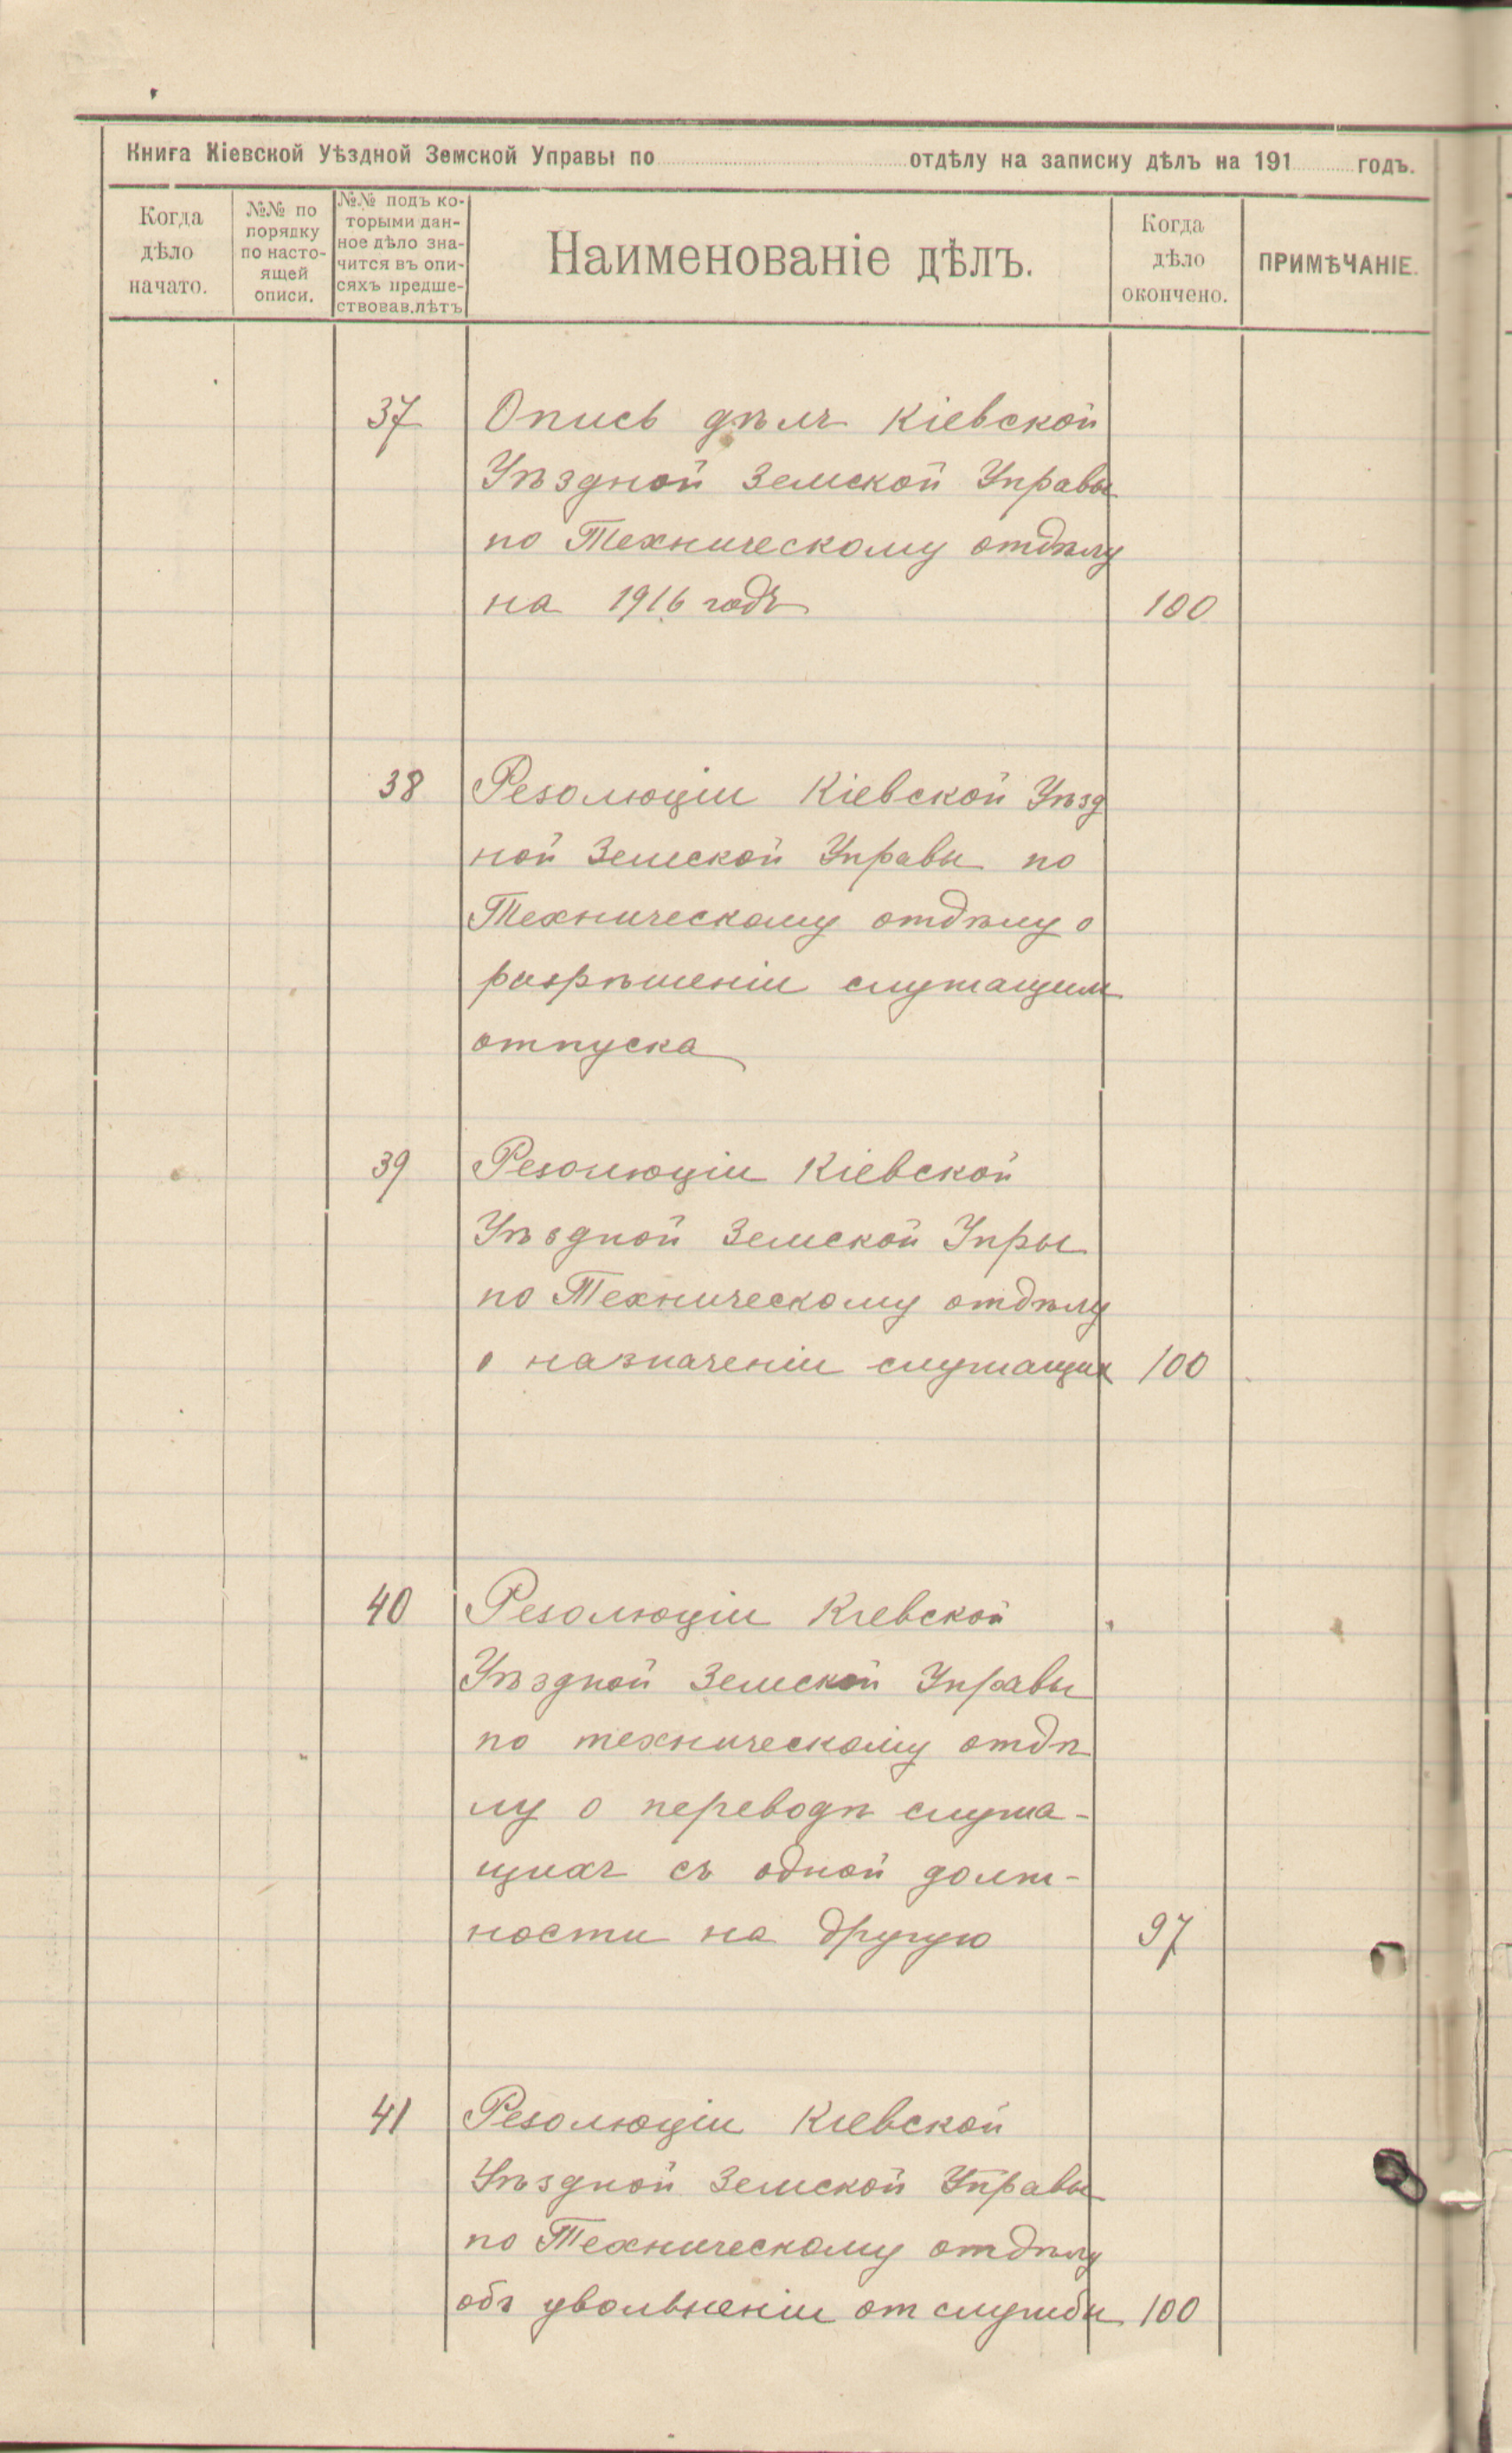 Книга Кіевской Уѣздной Земской Управы по отдѣлу на записку дѣлъ на 191 годъ.
Когда
дѣло
начато.
№№ по
порядку
по насто-
ящей
описи.
№№ подъ ко-
торыми дан-
ное дѣло зна-
чится въ опи-
сяхъ предше-
ствовав.лѣтъ
Наименованіе дѣлъ.
Когда
дѣло
окончено.
ПРИМѢЧАНІЕ.
37 Опись дѣлъ Кіевской
Уѣздной Земской Управы
по Техническому отдѣлу
на 1916 годъ 100
38 Резолюціи Кіевской Уѣзд
ной Земской Управы по
Техническому отдѣлу о
разрѣшеніи служащим
отпуска
39 Резолюціи Кіевской
Уѣздной Земской Упры
по Техническому отдѣлу
о назначеніи служащих 100
40 Резолюціи Кіевской
Уѣздной Земской Управы
по техническому отдѣ
лу о переводѣ служа-
щихъ съ одной долж-
ности на другую 97
41 Резолюціи Кіевской
Уѣздной Земской Управы
по Техническому отдѣлу
объ увольненіи от службы 100